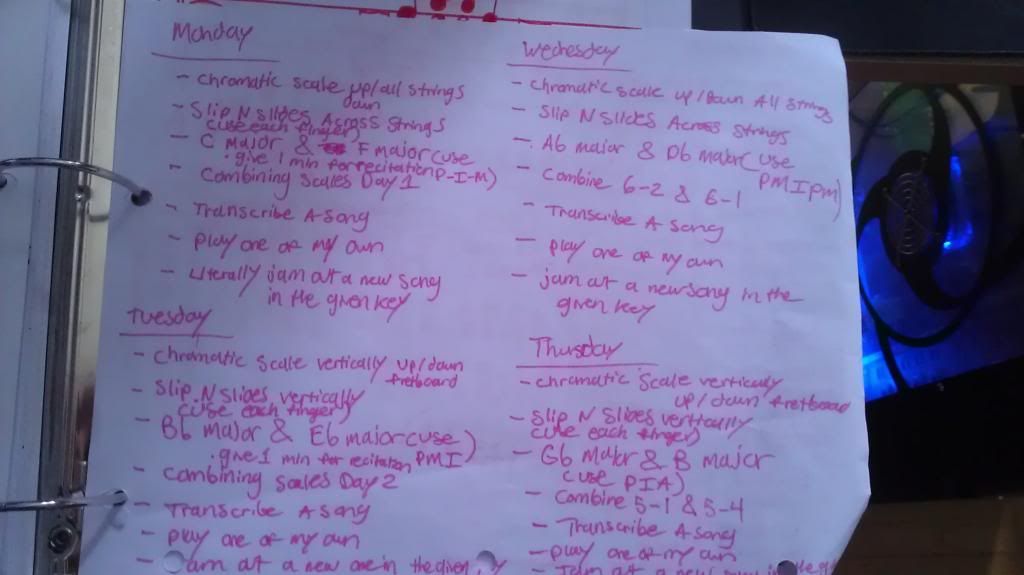 Monday
- chromatic scale up/all strings
down
- Slip N Slides Across Strings
(use each finger)
- C major & F major (use
. give 1 min for recitation P-I-M)
- Combining Scales Day 1
- Transcribe A song
- Play one of my own
- Literally jam out a new song
in the given key
Tuesday
- chromatic scale vertically up/down
fretboard
- Slip N Slides vertically
(use each finger)
- Bb major & Eb major (use
. give 1 min for recitation PMI)
- Combining Scales Day 2
- Transcribe A song
- Play one of my own
- Jam out a new one in the given
Wednesday
- chromatic scale up/Down All Strings
- Slip N Slides Across Strings
- Ab major & Db major (use
PMIPM)
- Combine 6-2 & 6-1
- Transcribe A song
- Play one of my own
- jam out a new song in the
given key
Thursday
- chromatic scale vertically
up/down fretboard
- Slip N Slides vertically
(use each finger)
- Gb Major & B major
(use PIA)
- Combine 5-1 & 5-4
- Transcribe A song
- play one of my own
- Jam out a new